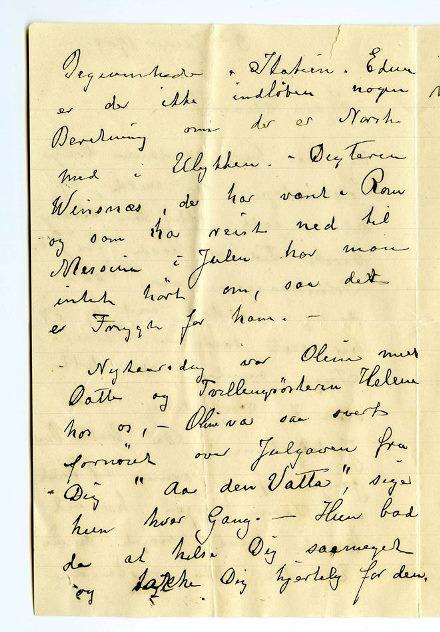 Begivenheder i Italien. Endnu
er der ikke indløben nogen
Beretning om der er Norske
med i Ulykken. – Digteren
Winsnæs, der har været i Rom
og som har reist ned til
Messina i Julen har man
intet hört om, saa det
er Frygt for ham. –
– Nytaarsdag var Oline med
Datter og Tvillingsösteren Helene
hos os, – Oline var saa svert
fornöiet over Julgaven fra
Dig "Aa den Vatta", siger
hun hver Gang. – Hun bad
da at helse Dig saameget
og takke Dig hjertelig for den.